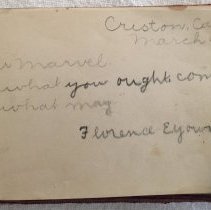 Creston, Ca
March
Marvel
what you ought, com
what may
Florence Eyow